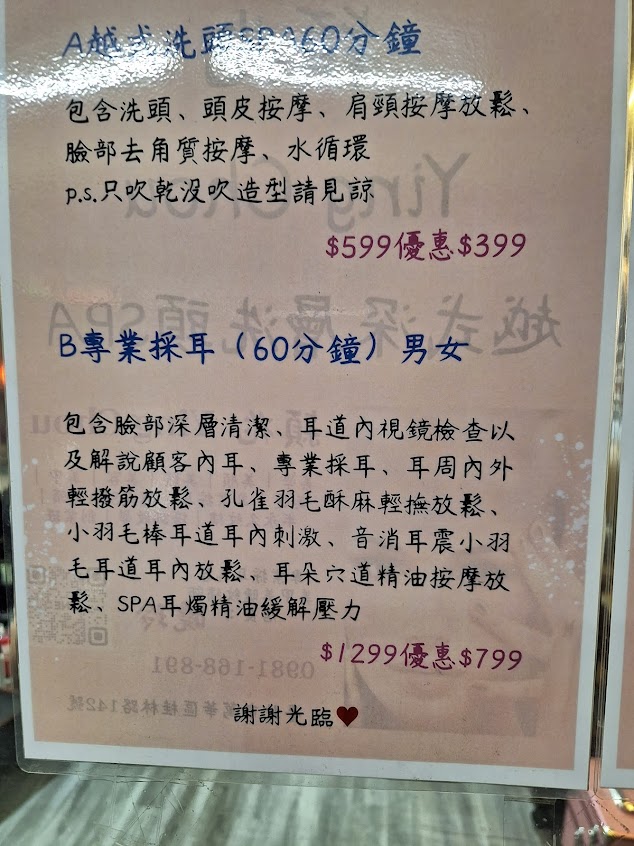 A越式洗頭SPA60分鐘
包含洗頭、頭皮按摩、肩頸按摩放鬆、
臉部去角質按摩、水循環
p.s.只吹乾沒吹造型請見諒
Ying Chou
$599優惠$399
越式深層洗頭SPA
B專業採耳（60分鐘）男女
包含臉部深層清潔、耳道內視鏡檢查以
及解說顧客內耳、專業採耳、耳周內外
輕撥筋放鬆、孔雀羽毛酥麻輕撫放鬆、
小羽毛棒耳道耳內刺激、音消耳震小羽
毛耳道耳內放鬆、耳朵穴道精油按摩放
鬆、SPA耳燭精油緩解壓力
$1299優惠$799
0981-168-891
華區桂林路142號
謝謝光臨❤